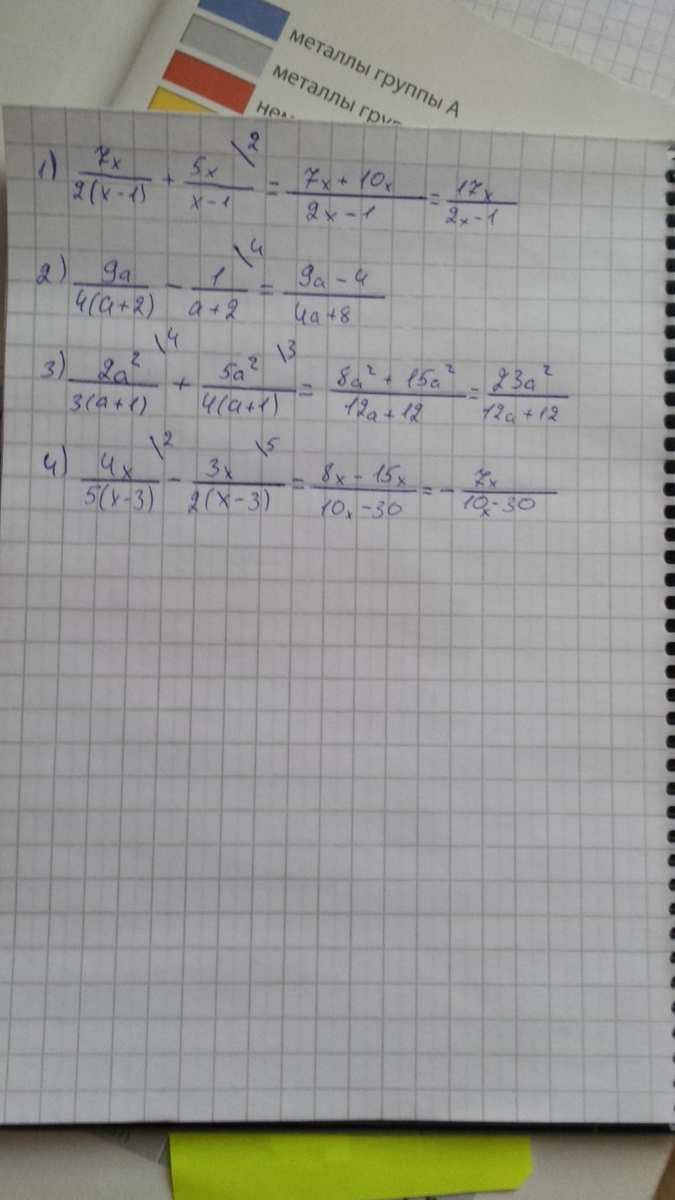 металлы группы А
металлы гру
нем
1) 7x/2(x-1) + 5x/x-1 \2 = 7x+10x/2x-1 = 17x/2x-1
2) 9a/4(a+2) - 1/a+2 \4 = 9a-4/4a+8
3) 2a²/3(a+1) \4 + 5a²/4(a+1) \3 = 8a²+15a²/12a+12 = 23a²/12a+12
4) 4x/5(x-3) \2 - 3x/2(x-3) \5 = 8x-15x/10x-30 = - 7x/10x-30